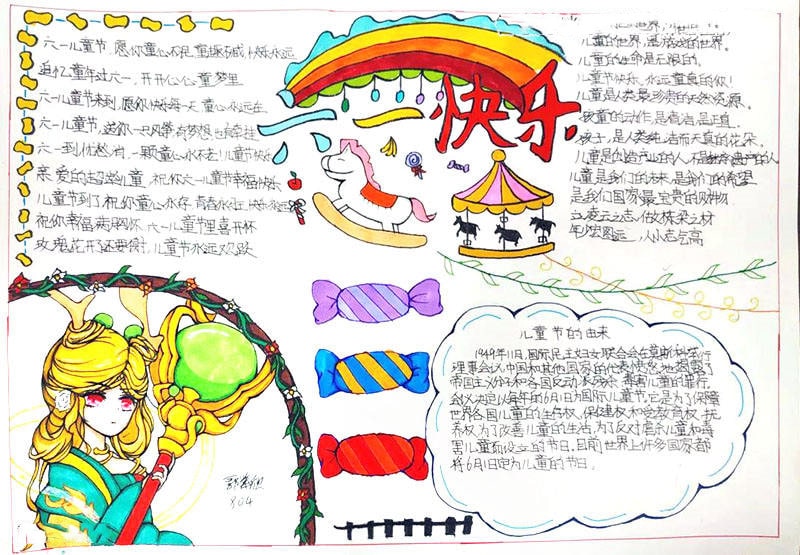 六一儿童节,愿你童心不泯,童趣不减,快乐永远
追忆童年过六一,开开心心童梦里
六一儿童节来到,愿你快乐每一天,童心永远在
六一儿童节,送你一只风筝,有梦想也有牵挂
六一到,忧愁消,一颗童心永不老!儿童节快乐
亲爱的超龄儿童,祝你六一儿童节幸福快乐
儿童节到了,祝你童心永存,青春永驻,快乐永远
祝你幸福满胸怀,六一儿童节里喜开怀
儿童节永远欢跃
六一快乐
儿童的世界,是游戏的世界。
儿童的生命是无限的。
儿童节快乐,永远童真的你!
儿童是人类最珍贵的天然资源。
孩童的动作,是高洁,是天真。
孩子,是人类纯洁而天真的花朵。
儿童是创造产业的人,不是继承遗产的人
儿童是我们的未来,是我们的希望
是我们国家最宝贵的财物
立凌云之志,做栋梁之材
年少宏图远,人小志气高
儿童节的由来
1949年11月,国际民主妇女联合会在莫斯科举行
理事会议,中国和其他国家的代表愤怒地揭露了
帝国主义分子和各国反动派残杀、毒害儿童的罪行。
会议决定以每年的6月1日为国际儿童节。它是为了保障
世界各国儿童的生存权、保健权和受教育权、抚
养权,为了改善儿童的生活,为了反对虐杀儿童和毒
害儿童而设立的节日。目前世界上许多国家都
将6月1日定为儿童的节日。
804